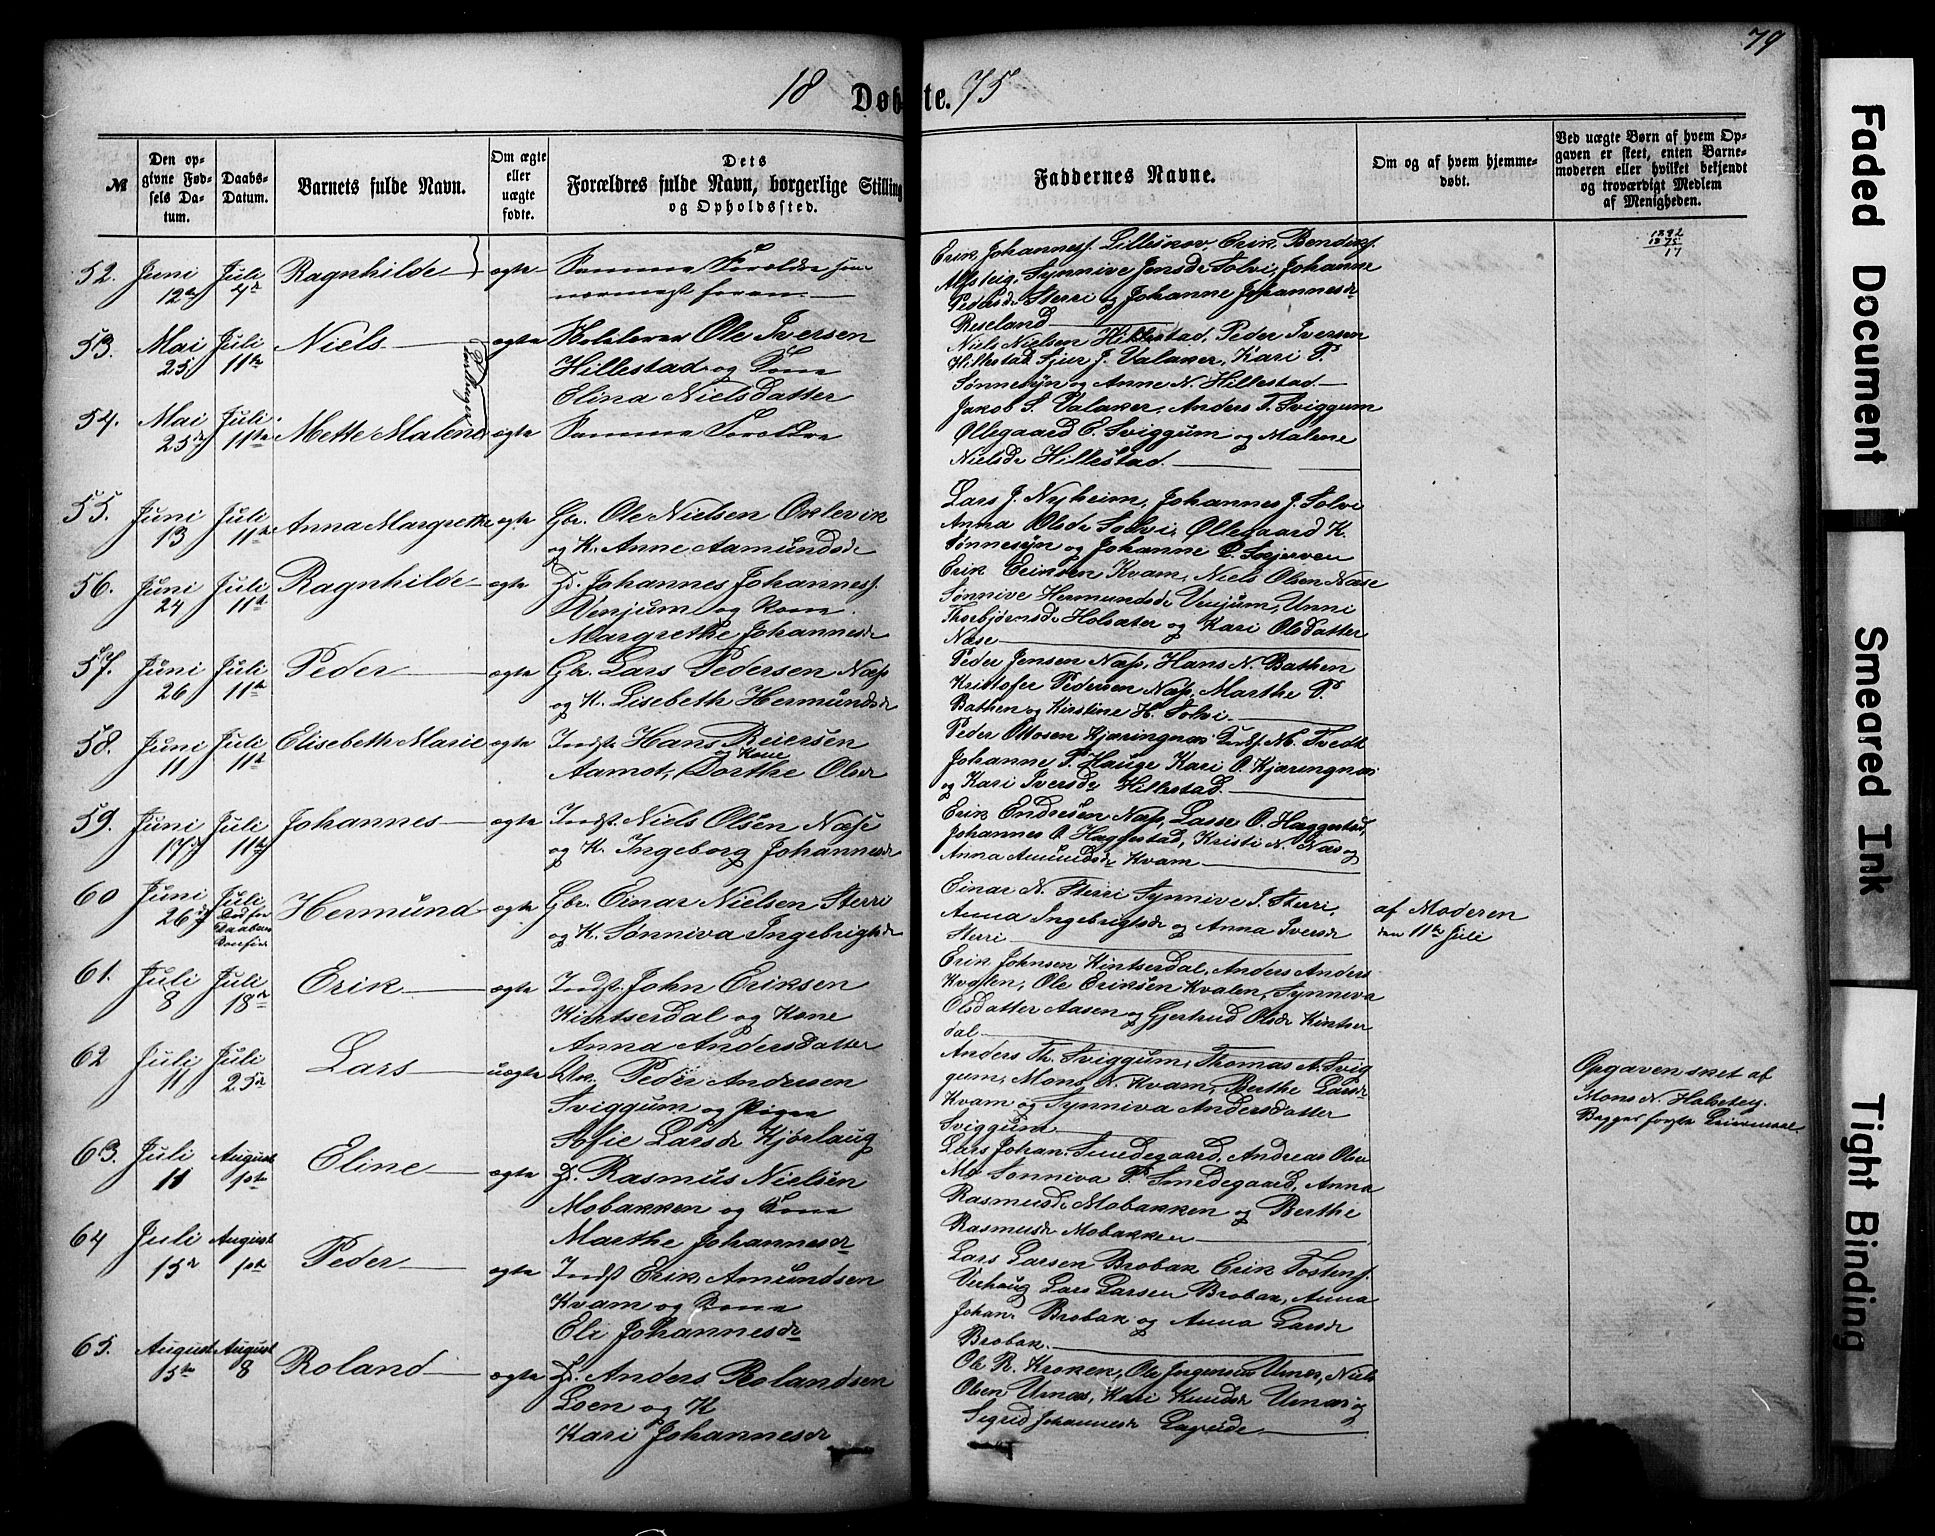 79
18 Døbte. 75
№
Den op-
givne Fød-
sels Da-
tum.
Daabs-
Datum.
Barnets fulde Navn.
Om ægte
eller
uægte
fødte.
Dets
Forældres fulde Navn, borgerlige Stilling
og Opholdssted.
Faddernes Navne.
Om og af hvem hjemme-
døbt.
Ved uægte Børn af hvem Op-
gaven er skeet, enten Barne-
moderen eller hvilket bekjendt
og troværdigt Medlem
af Menigheden.
1892
1875
17
52. Juni 12te Juli 4de Ragnhilde ægte Samme Forældre som
nærmest foran
Erik Johannesf. Lilleskov, Erik Bendiksf.
Alfsteig, Synnive Jensdr Solvi, Johanne
Pedersdr Sterri og Johanne Johannesdr
Reseland
53. Mai 25 Juli 11te Niels ægte Ole Iversen
Hillestad og Kone
Elina Nielsdatter
Niels Nielsen Hillestad, Peder Iversen
Hillestad Sjur J. Valaker, Kari P.
Sønnesyn og Anne N. Hillestad
54. Mai 25de Juli 11te Mette Malene ægte Samme Forældre
Jakob S. Valaker, Anders T. Sviggum
Øllegaard E. Sviggum og Malene
Nielsdr Hillestad
55. Juni 13 Juli 11te Anna Margrethe ægte Gbr. Ole Nielsen Oklevik
og K. Anne Aamundsdr
Lars J. Nyheim, Johannes J. Solvi
Anna Olsdr Solvi, Øllegaard K.
Sønnesyn og Johanne P. Skjerven
56. Juni 24 Juli 11te Ragnhilde ægte Gd. Johannes Johannesf.
Venjum og Kone
Margrethe Johannesdr
Erik Eriksen Kvam, Niels Olsen Næse
Sønnive Hermundsdr Venjum, Unni
Thorbjørnsdr Holsæter og Kari Olsdatter
Næse
57. Juni 26 Juli 11te Peder ægte Gbr. Lars Pedersen Næss
og K. Lisebeth Hermundsdr
Peder Jensen Næss, Hans N. Bathen
Kristofer Pedersen Næss, Marthe P.
Bathen og Kirstine H. Solvi
58. Juni 11 Juli 11te Elisebeth Marie ægte Indst. Hans Reiersen
Aamot, og Kone Dorthe Olsdr
Peder Ottosen Kjæringnæs Indst. N. Tvedt
Johanne P. Hauge Kari O. Kjæringnæs
og Kari Iversdr Hillestad
59. Juni 17de Juli 11te Johannes ægte Indst. Niels Olsen Næse
og K. Ingeborg Johannesdr
Erik Endresen Næss, Lasse O. Haggestad,
Johannes O. Haggestad, Kristi N. Næs og
Anna Amundsdr Kvam
60 Juni 26de Juli Hermund ægte Gbr. Einar Nielsen Sterri
og K. Sønniva Ingebrigtsdr
Einar N. Sterri Synnive I. Sterri,
Anna Ingebrigtsdr og Anna Iversdr
Sterri
af Moderen
den 11te Juli
61. Juli 8 Juli 18de Erik ægte Indst. John Eriksen
Kintserdal og Kone
Anna Andersdatter
Erik Johnsen Kintserdal, Anders Anders
Kvalen, Ole Eriksen Kvalen, Synneva
Olsdatter Aasen og Gjertrud Olsdr Kintser
dal
62 Juli 11 Juli 25de Lars uægte Uk. Peder Andersen
Sviggum og Pigen
Sofie Larsdr Kjørlaug
Anders Th. Sviggum, Thomas A. Svig
gum, Mons N. Kvam, Berthe Larsdr
Kvam og Synniva Andersdatter
Sviggum
Opgaven sket af
Mons N. Halsteg.
Begges første Leiermaal
63. Juli 11 August 1ste Eline ægte Gd. Rasmus Nielsen
Mobakken og Kone
Marthe Johannesdr
Lars Johan. Smedegaard, Andreas Olsen
Mo Sonniva P. Smedegaard, Anna
Rasmusdr Mobakken og Berthe
Rasmusdr Mobakken
64 Juli 15de August 1ste Peder ægte Indst Erik Amundsen
Kvam og Kone
Eli Johannesdr
Lars Larsen Brobak Erik Tostensf.
Verhaug Lars Larsen Brobak, Anna
Johans Brobak og Anna Larsdr
Brobak
65. August 5te August 8 Roland ægte Gd. Anders Rolandsen
Loen og K
Kari Johannesdr
Ole R. Kroken, Ole Jørgensen Urnes, Niels
Olsen Urnæs, Kari Knudsdr Urnæs og
Sigrid Johannesdr
Faded Document
Smeared Ink
Tight Binding